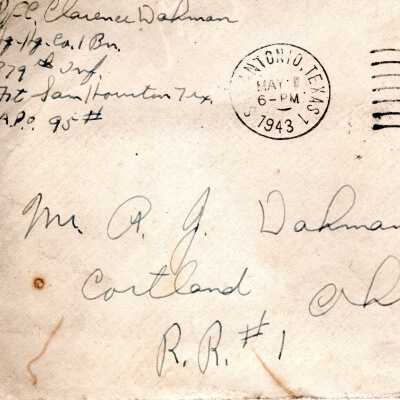 Pfc. Clarence Dahman
Hq. Hq. Co. 1 Bn.
379th Inf.
Ft Sam Houston Tex.
A.P.O. 95 #
ANTONIO, TEXAS 1
MAY
6-PM
1943
Mr. A. J. Dahman
Cortland Oh
R.R. #1